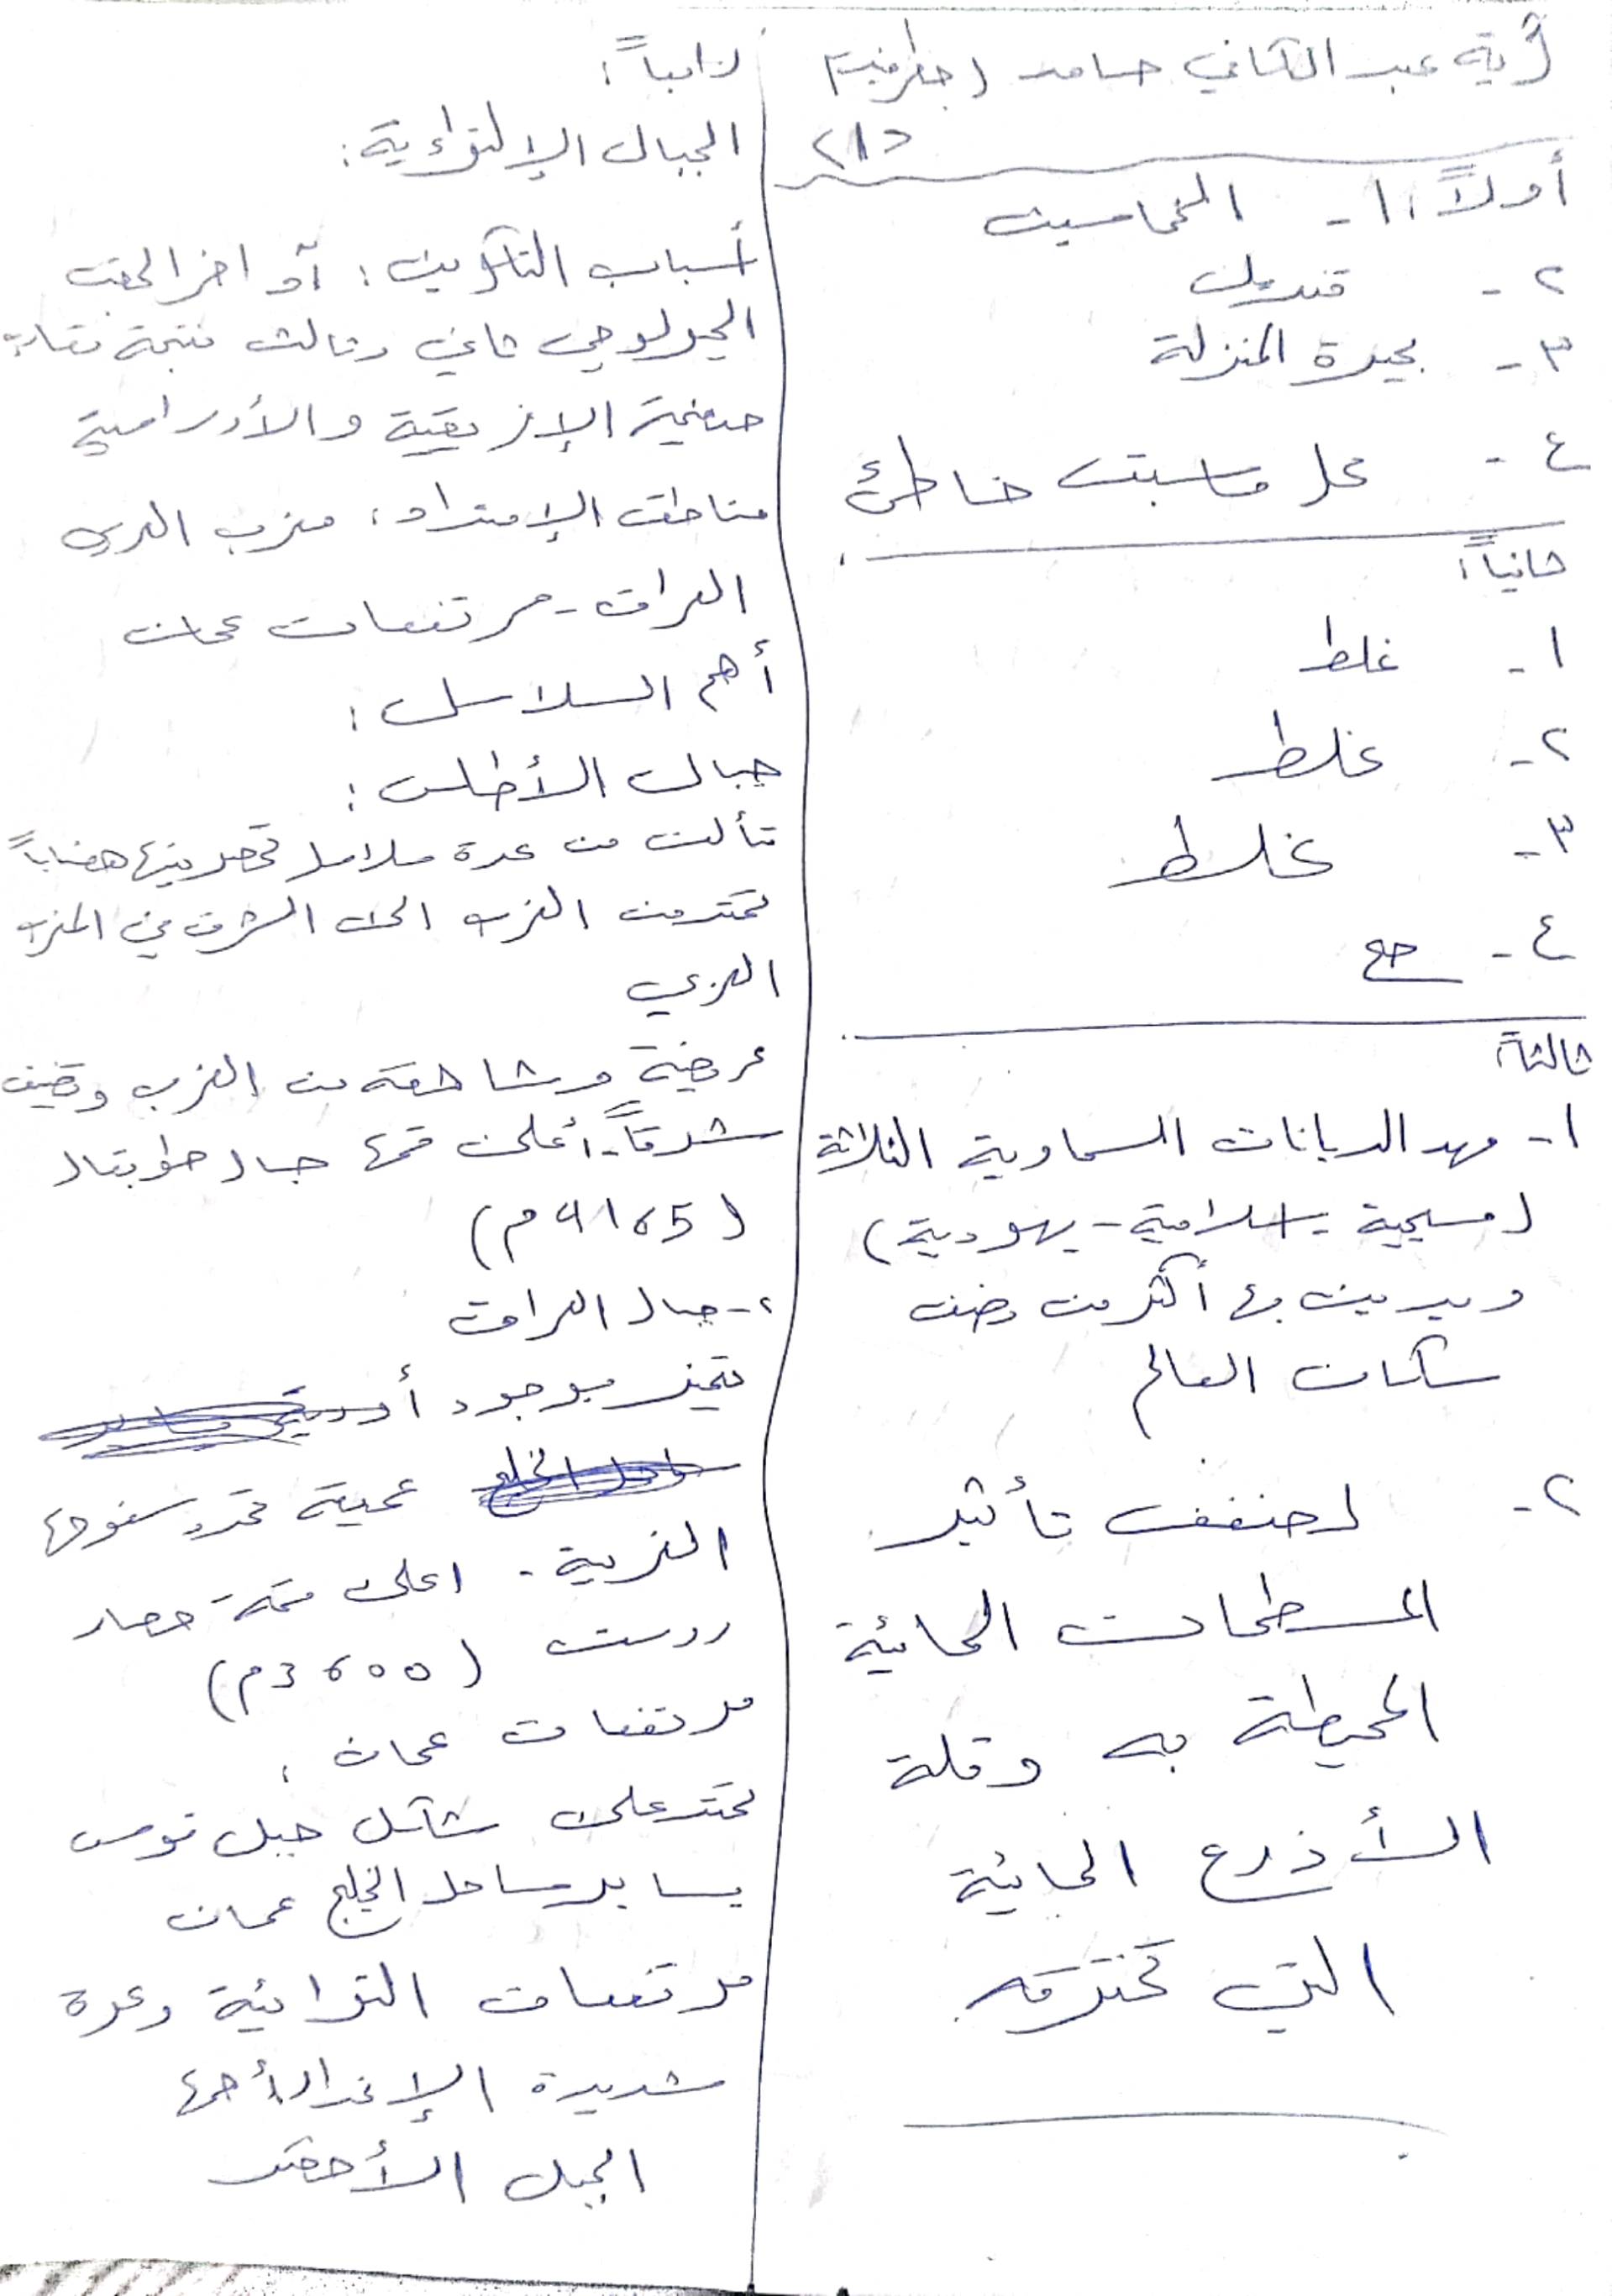 آية عبد الكافي حامد (جغرافية)
أولاً: ١- الخماسين
٢- قنديل
٣- بحيرة المنزلة
٤- كل ماسبق خاطئ
ثانياً:
١- غلط
٢- غلط
٣- غلط
٤- صح
ثالثاً:
١- مهد الديانات السماوية الثلاثة
(مسيحية - إسلامية - يهودية)
ويدين بها أكثر من نصف
سكان العالم
٢- لضعف تأثير
المسطحات المائية
المحيطة به وقلة
الأذرع المائية
التي تخترقه
رابعاً:
الجبال الإلتوائية:
أسباب التكوين: أواخر الحقب
الجيولوجي ثاني وثالث نتيجة تقارب
صفيحة الإفريقية والأوراسية
مناطق الإمتداد: مغرب العربي
العراق - مرتفعات عمان
أهم السلاسل:
جبال الأطلس:
تتألف من عدة سلاسل تحصر بينها هضاباً
تمتد من الغرب الى الشرق في المغرب
العربي
عريضة وشاهقة من الغرب وتضيق
شرقاً - أعلى قمها جبال طوبقال
(4165م)
٢- جبال العراق
تتميز بوجود أودية
عميقة تحدد سفوحها
الغربية. اعلى قمة حصار
روست (3600م)
مرتفعات عمان:
تمتد على شكل جبل قوس
يساير ساحل الخليج عمان
مرتفعات التوائية وعرة
شديدة الإنحدار أهمها
الجبل الأخضر